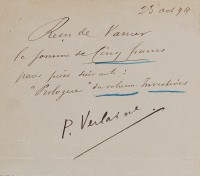 23 oct 94
Reçu de Vanier
la somme de cinq francs
pour pièce suivante :
"Prologue" du volume Invectives
P. Verlaine